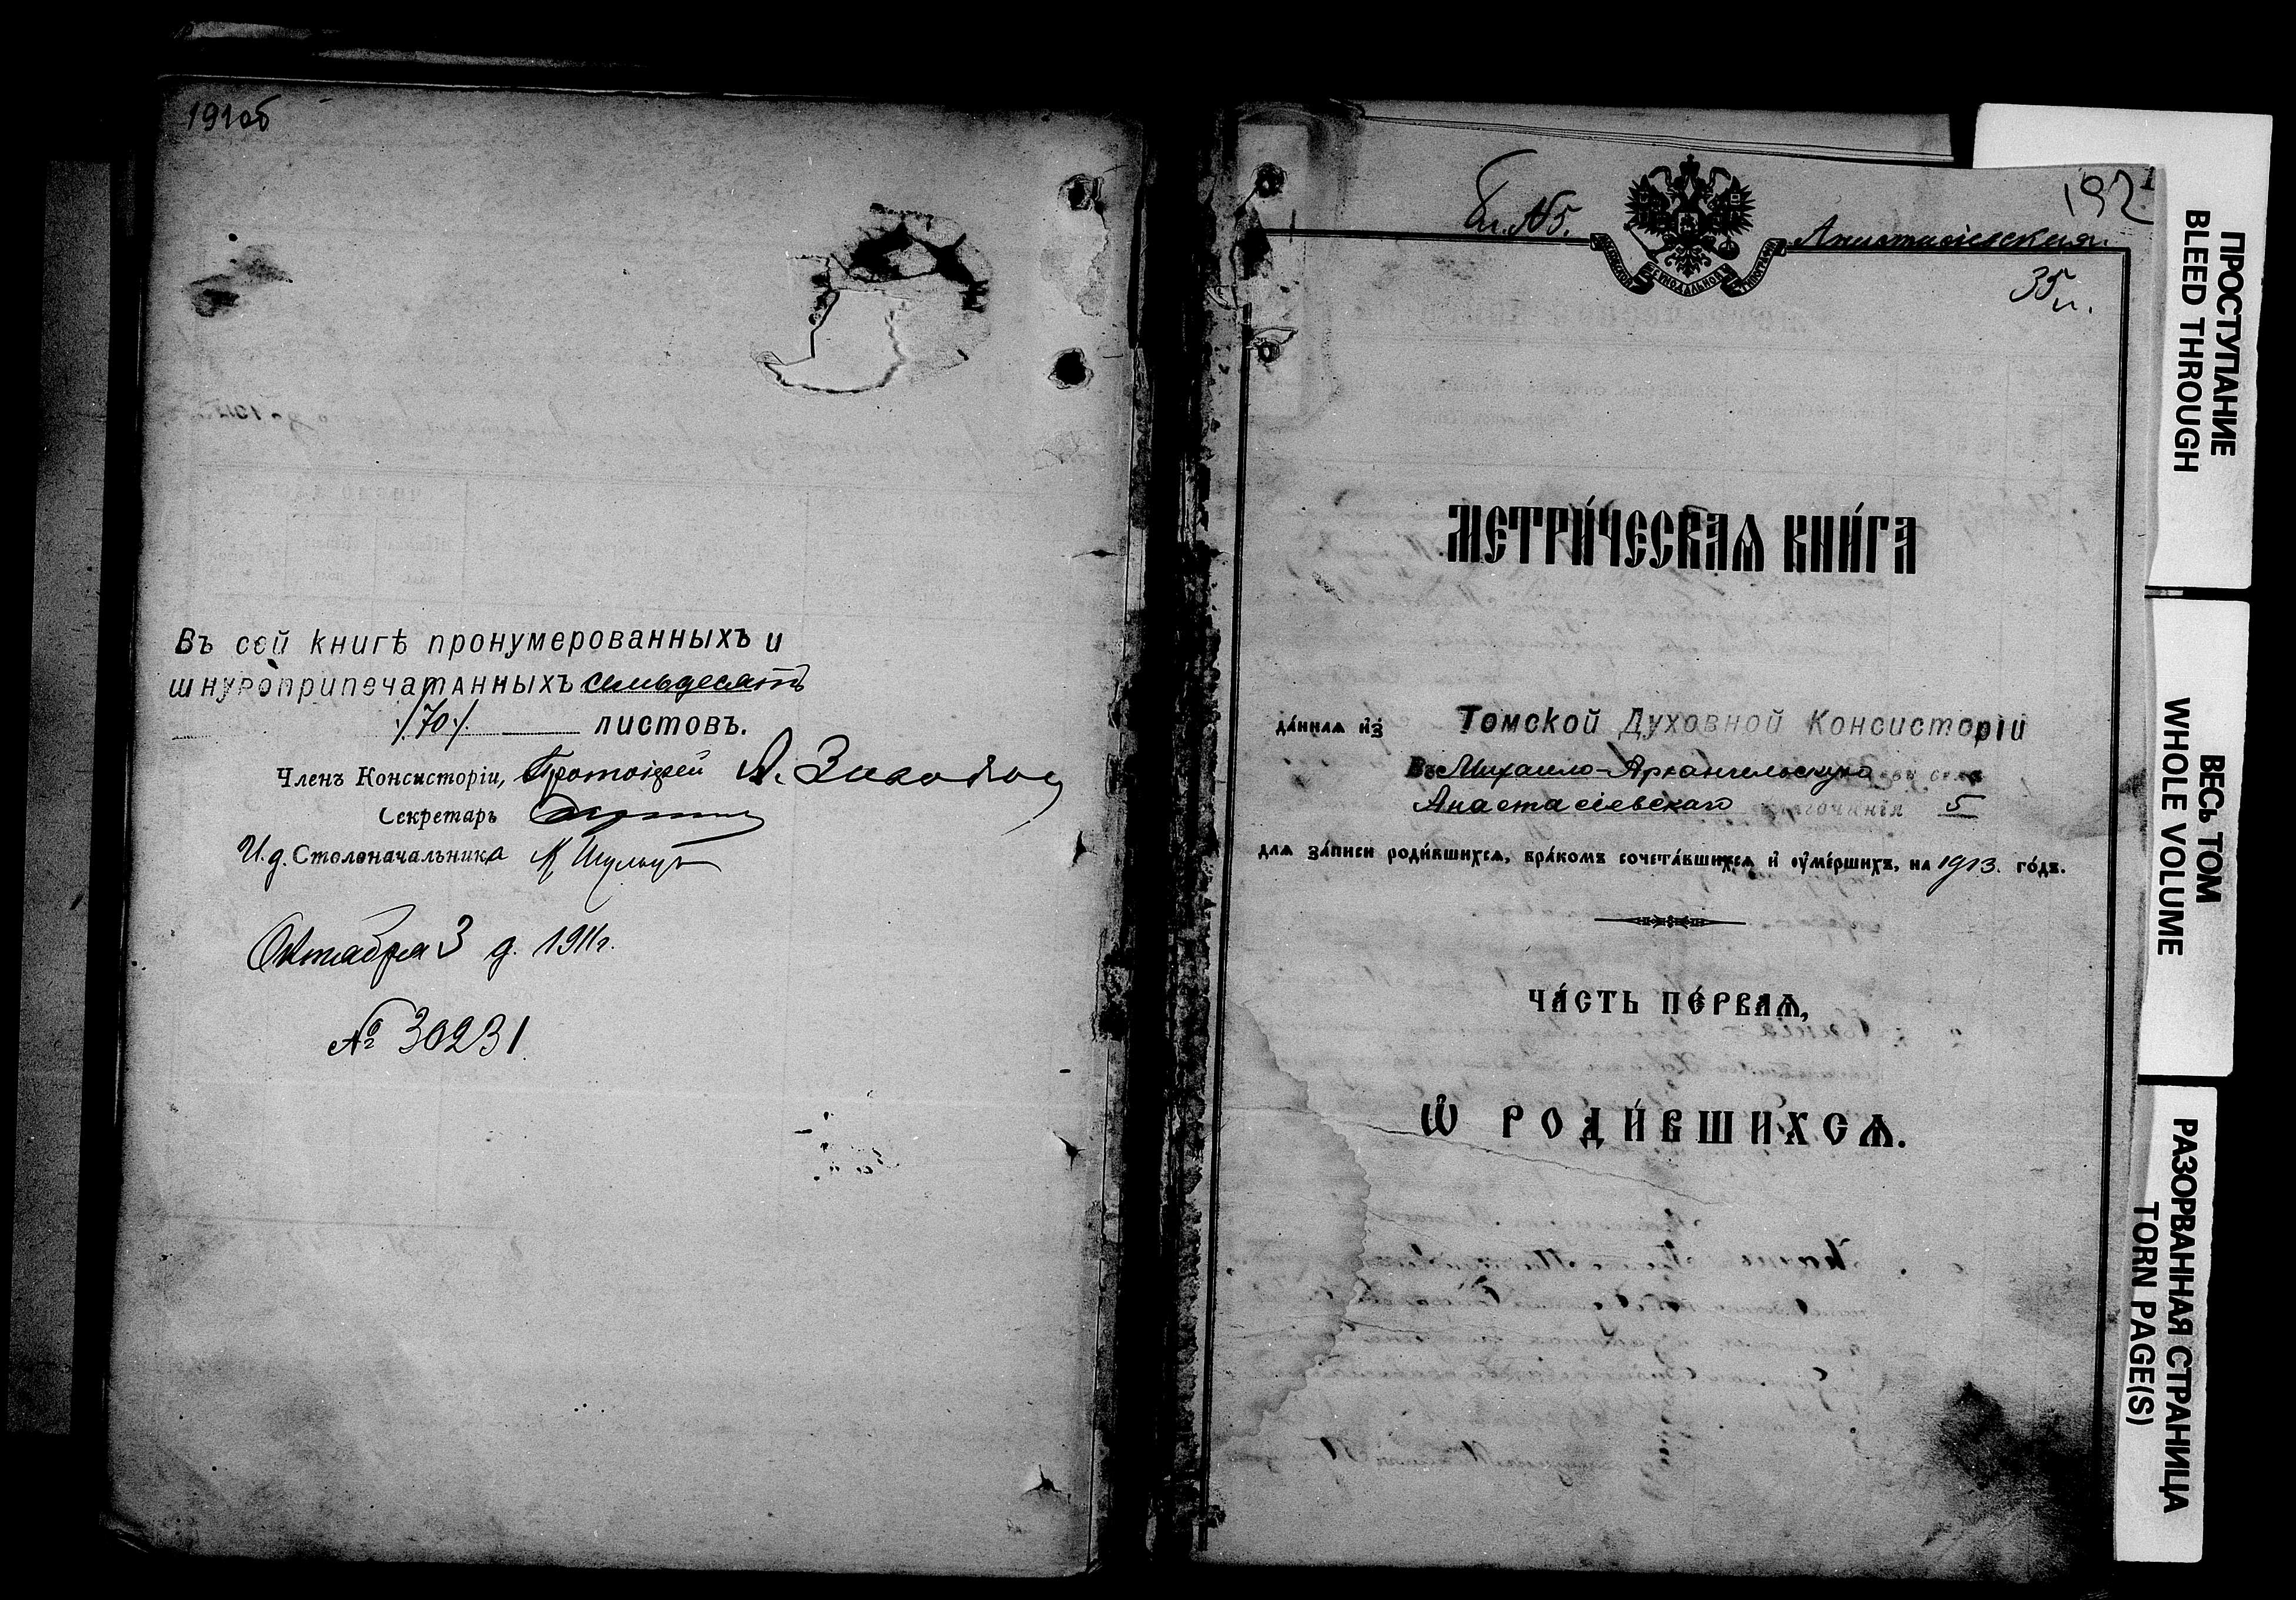 191об
Въ сей книгѣ пронумерованныхъ и
шнуроприпечатанныхъ семьдесятъ
/70/. листовъ.
Членъ Консисторіи, Протоіерей А. Заводов
Секретарь
И.д. Столоначальника
Октября 3 д. 1911г.
№ 30231
192
Бл. №5.
Анастасіевская.
35 л.
МОСКОВСКОЙ СѴНОДАЛЬНОЙ ТИПОГРАФІИ
МЕТРИ́ЧЕСКАѦ КНИ́ГА
да́ннаѧ и҆з̾ Томской Духовной Консисторіи
Въ Михаило-Архангельскую церковь села
Анастасіевскаго благочинія 5
длѧ за́писи роди́вшихсѧ, бра́комъ сочета́вшихсѧ и҆ ѹ҆ме́ршихъ, на 1913. го́дъ.
ЧА́СТЬ ПЕ́РВАѦ,
Ѽ РОДИ́ВШИХСѦ.
ПРОСТУПАНИЕ
BLEED THROUGH
ВЕСЬ ТОМ
WHOLE VOLUME
РАЗОРВАННАЯ СТРАНИЦА
TORN PAGE(S)